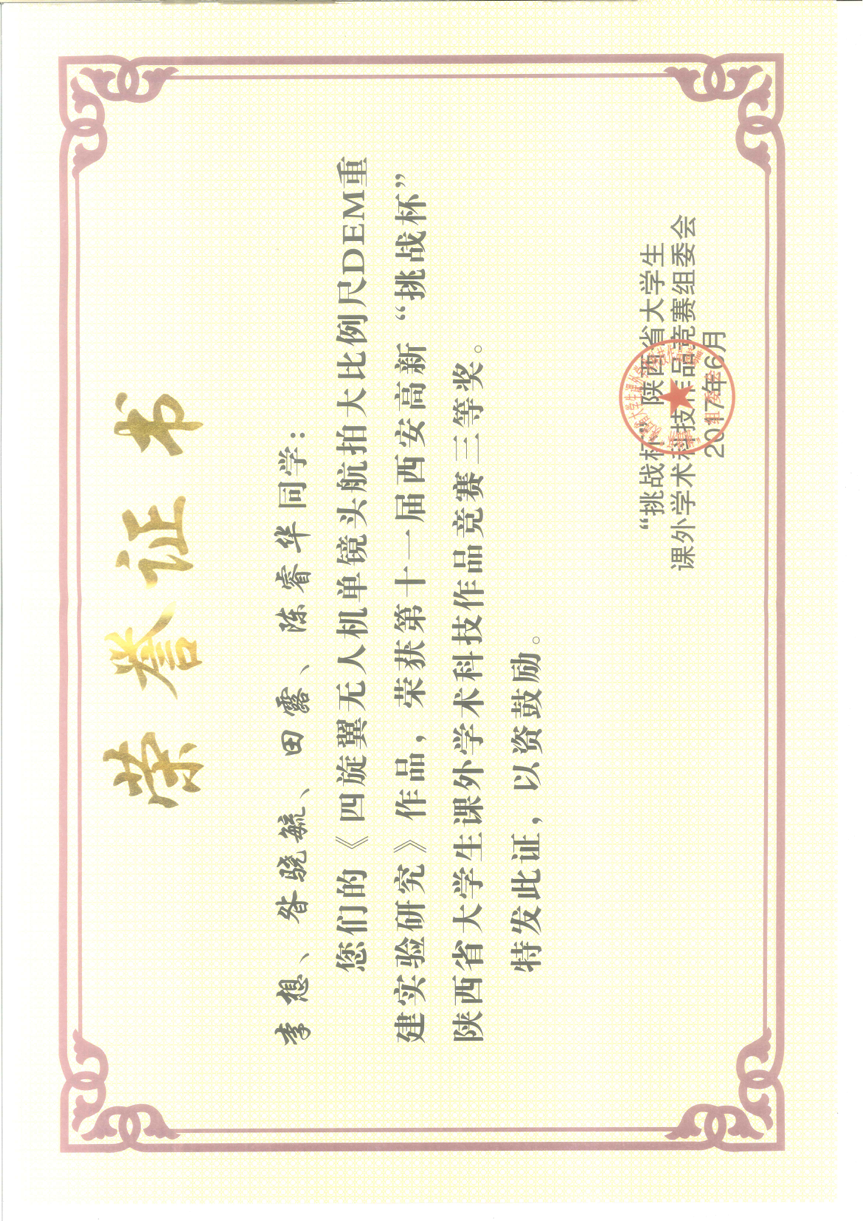 荣誉证书
李想、昝骁毓、田露、陈睿华同学：
您们的《四旋翼无人机单镜头航拍大比例尺DEM重
建实验研究》作品，荣获第十一届西安高新“挑战杯”
陕西省大学生课外学术科技作品竞赛三等奖。
特发此证，以资鼓励。
“挑战杯”陕西省大学生
课外学术科技作品竞赛组委会
2017年6月